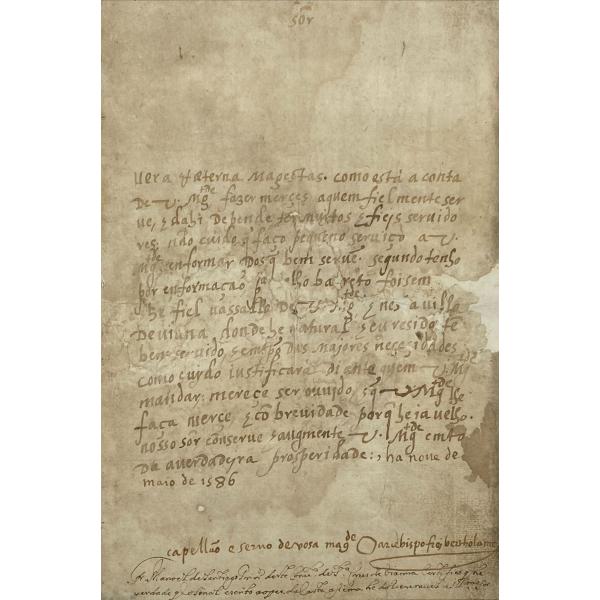 Sõr
vera & æterna Magestas. como está a conta
De V. Mg.de fazer merces aquem fielmente ser
ve, e dahi Depende ter muitos e fieis servido
res. não cuido q̃ faço pequeno serviço a V.
Mg.de enformar Dos q̃ bem servẽ. segundo tenho
por enformação p.a lho barreto foi sem
he fiel vassallo De V. Mg.de q̃ nesta villa
De viana, donde he natural e eu resido te
bem servido, e em tp̃o das majores necesidades
como cuydo justificará diante quem V. Mg.de
mandar. merece ser ouvido, e q̃ V. Mg.de lhe
faça merce, e cõ brevidade porq̃ he ia velho.
nosso sõr conserve e augmente V. Mg.de em to
Da averdadeyra prosperidade:, ha nove de
maio de 1586
capellão e servo de vosa mag.de O arcebispo frei bertolameu
Fr Manoel de Santiago
verdade que o sinal escrito ao pee da carta asima he do